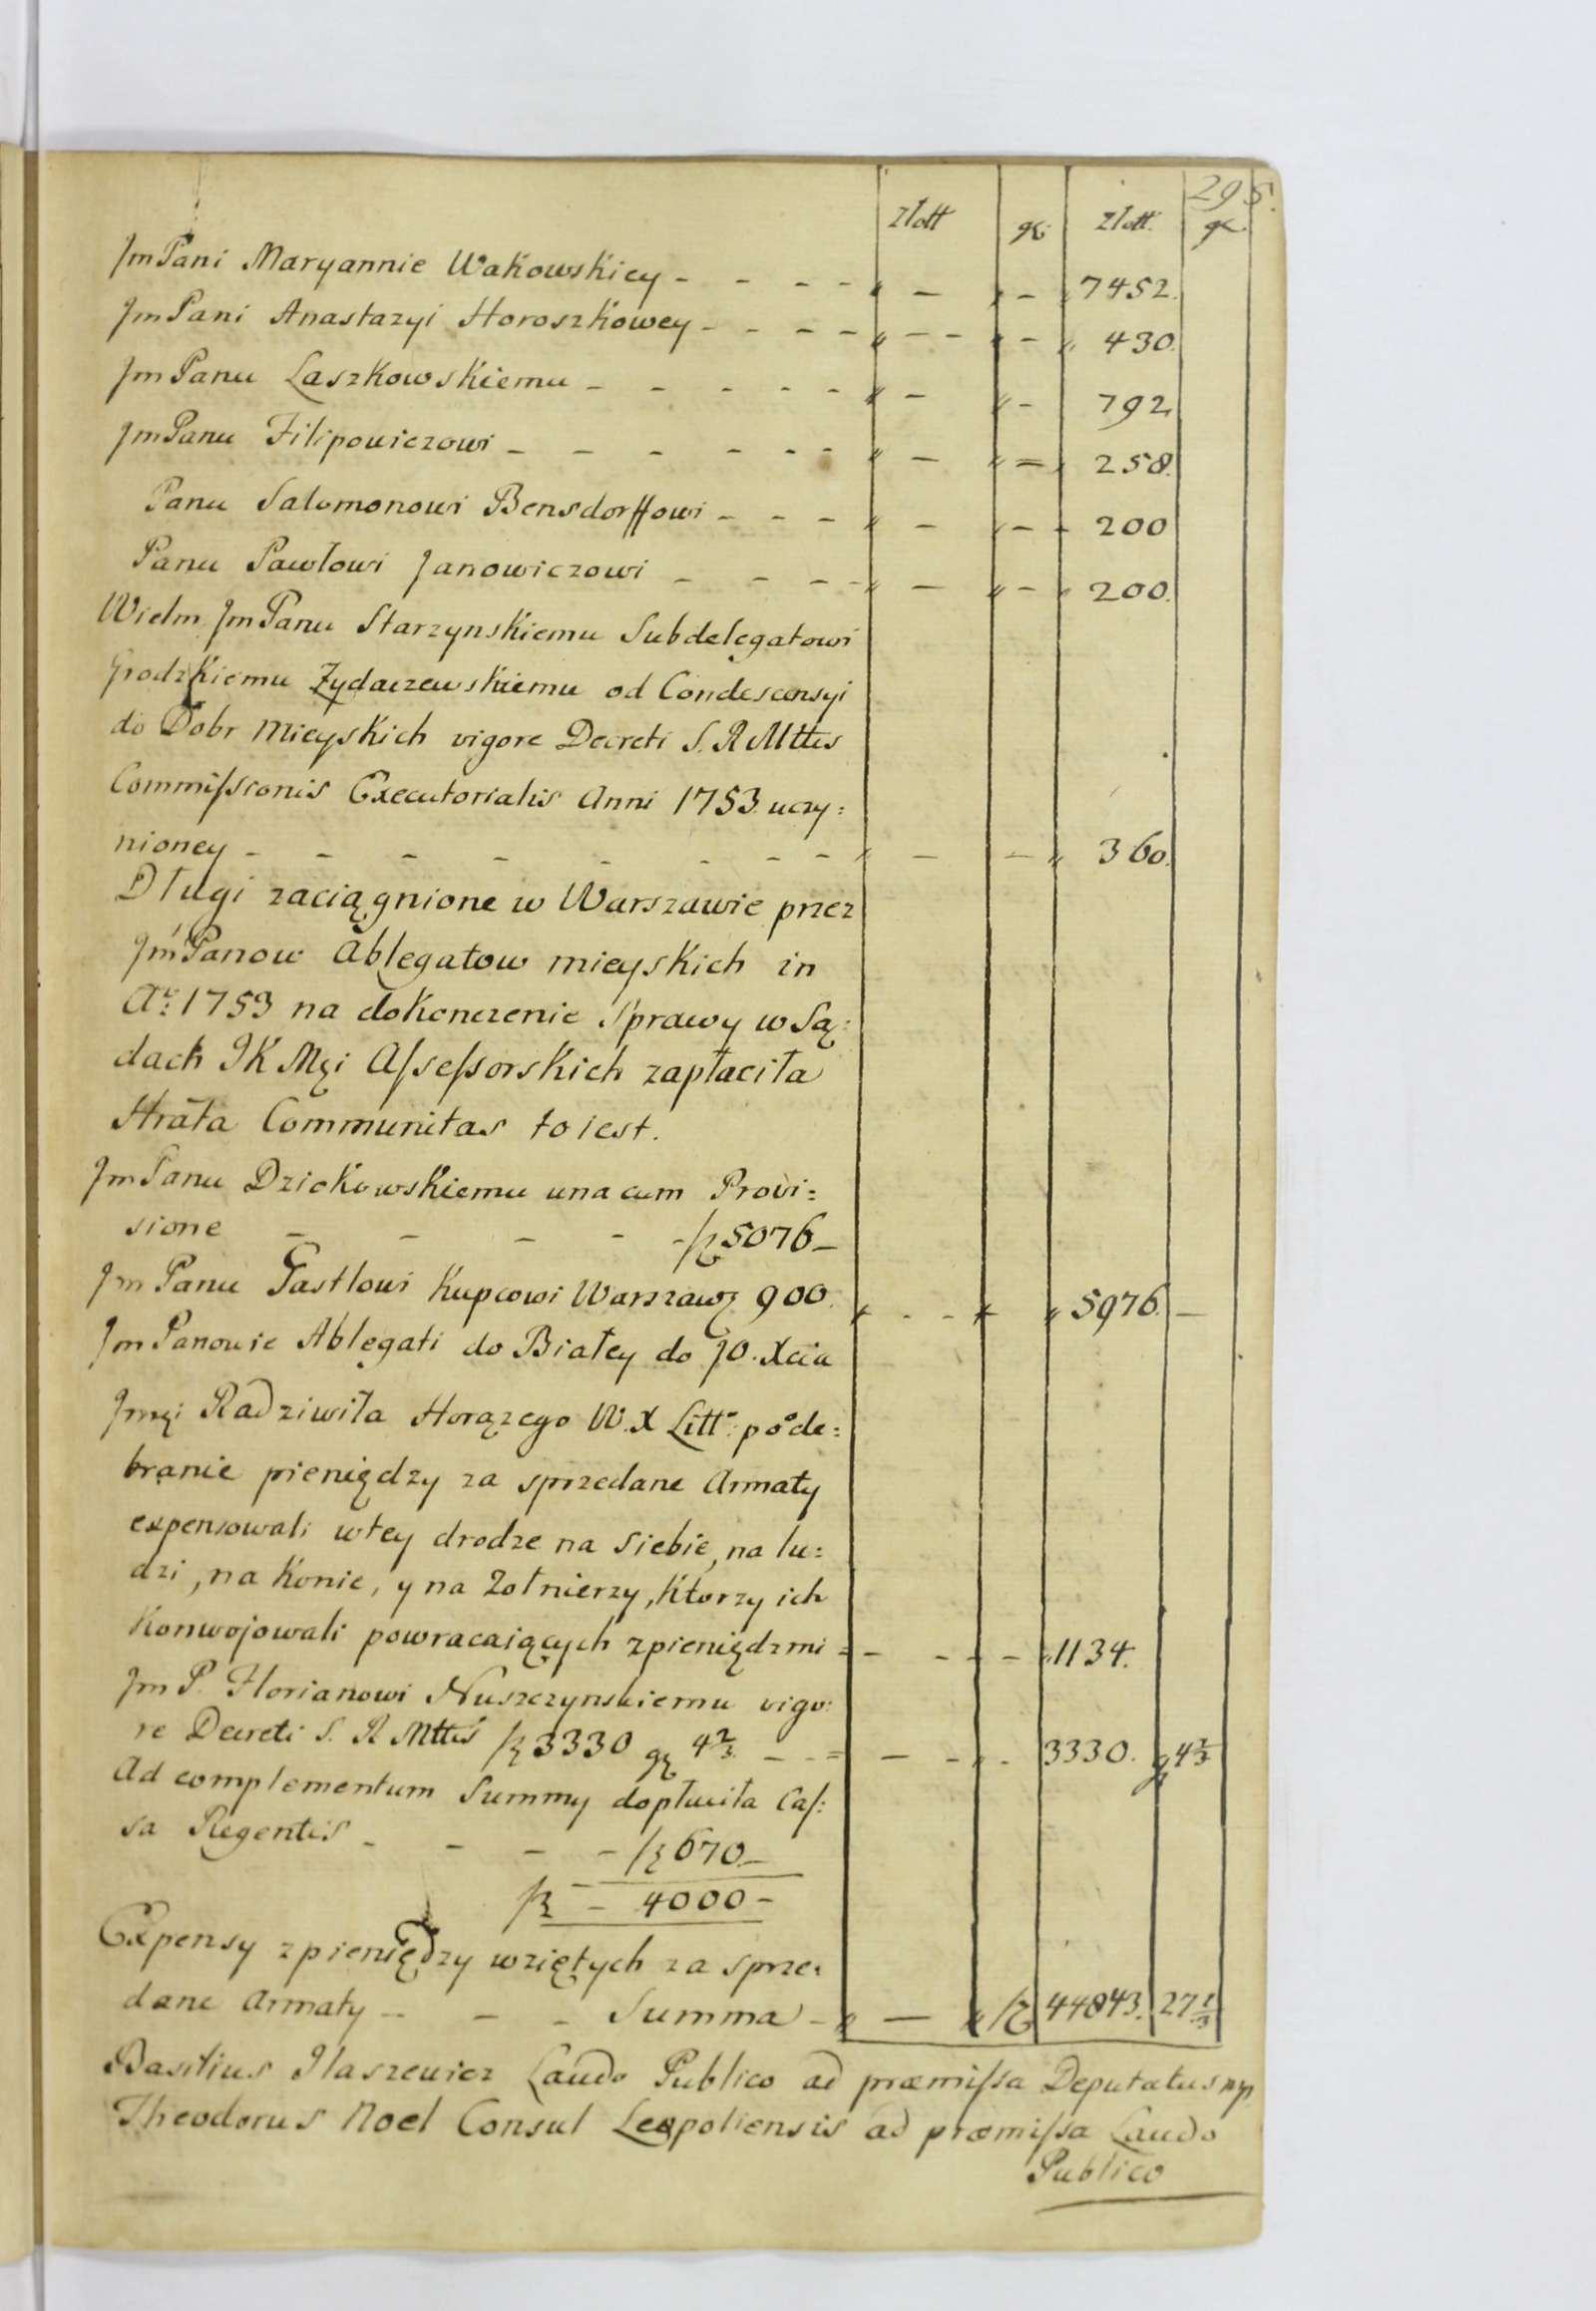 295.
Zlott gr. Zlott. gr.
JmPani Maryannie Wakowskiey - - - - " — " - " 7452.
JmPani Anastazyi Horoszkowey - - - - " - - " - " 430.
JmPanu Laszkowskiemu - - - - - " - " - 792
JmPanu Filipowiczowi - - - - - - " — " = 258.
Panu Salomonowi Bensdorffowi - - - " - " - 200
Panu Pawłowi Janowiczowi - - - - " — " - " 200.
Wielm JmPanu Starzynskiemu Subdelegatowi
Grodzkiemu Zydaczewskiemu od Condescensyi
do Dobr Mieyskich vigore Decreti S. R Mttis
Commissionis Executorialis Anni 1753. uczy:
nioney - - - - - - - - " — — " 360.
Długi zaciągnione w Warszawie przez
JmPanow Ablegatow mieyskich in
Ao: 1753 na dokonczenie Sprawy w Są:
dach JK Mći Assessorskich zapłaciła
Strata Communitas to iest.
JmPanu Dziekowskiemu una cum Provi:
sione - - - - - fl 5076 –
Jm Panu Gastlowi Kupcowi Warszaw 900. " - - " " 5976. —
Jm Panowie Ablegati do Białey do JO. Xcia
Jmći Radziwiła Horązego W. X Litt: po ode:
branie pieniędzy za sprzedane Armaty
expensowali w tey drodze na siebie, na lu:
dzi, na Konie, y na Zołnierzy, Ktorzy ich
Konwojowali powracaiących z pieniędzmi = - - - - 1134.
Jm P. Florianowi Nuszczynskiemu vigo:
re Decreti S. R Mttis fl 3330 gr 4 2/3. - - = — - - - 3330. g 4 2/3
Ad complementum Summy dopłaciła Cas:
sa Regentis - - - - fl 670 –
fl – 4000 –
Expensy z pieniędzy wziętych za sprze:
dane Armaty - - - Summa - " — " fl 44843. 27 1/3
Basilius Ilaszewicz Laudo Publico ad præmissa Deputatus mp
Theodorus Noel Consul Leopoliensis ad præmissa Laudo
Publico